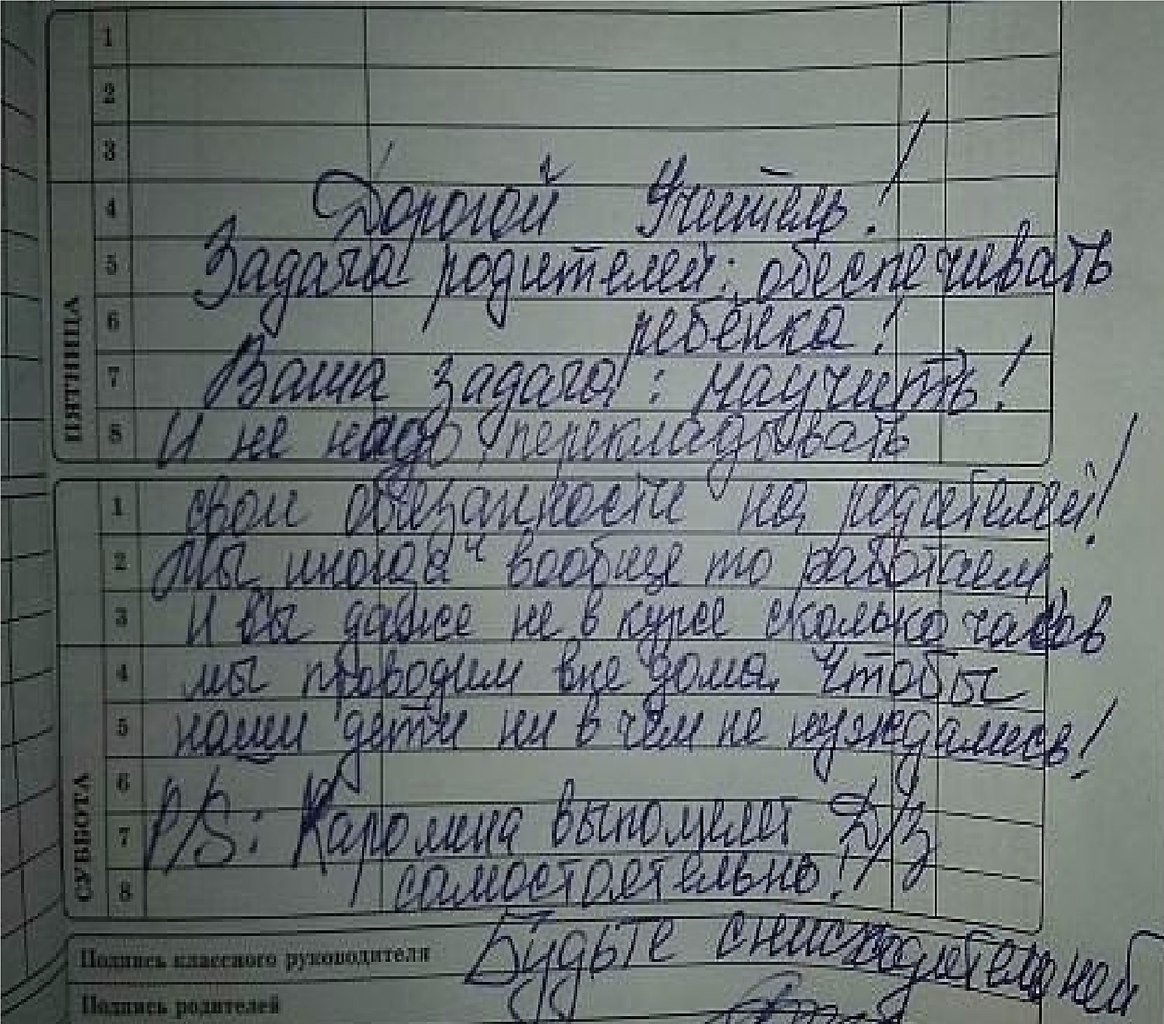 1
2
3
Дорогой Учитель!
4
Задача родителей: обеспечивать
5
ребёнка!
6
Ваша задача: научить!
7
И не надо перекладывать
8
ПЯТНИЦА
свои обезанности на родителей!
1
Мы иногда вообще то работаем
2
И вы даже не в курсе сколько часов
3
мы проводим вне дома. Чтобы
4
наши дети ни в чём не нуждались!
5
6
P/S: Каромена выполнелет Д/З
7
самостоятельно!
8
СУББОТА
Будьте снисходительней
Подпись классного руководителя
Подпись родителей